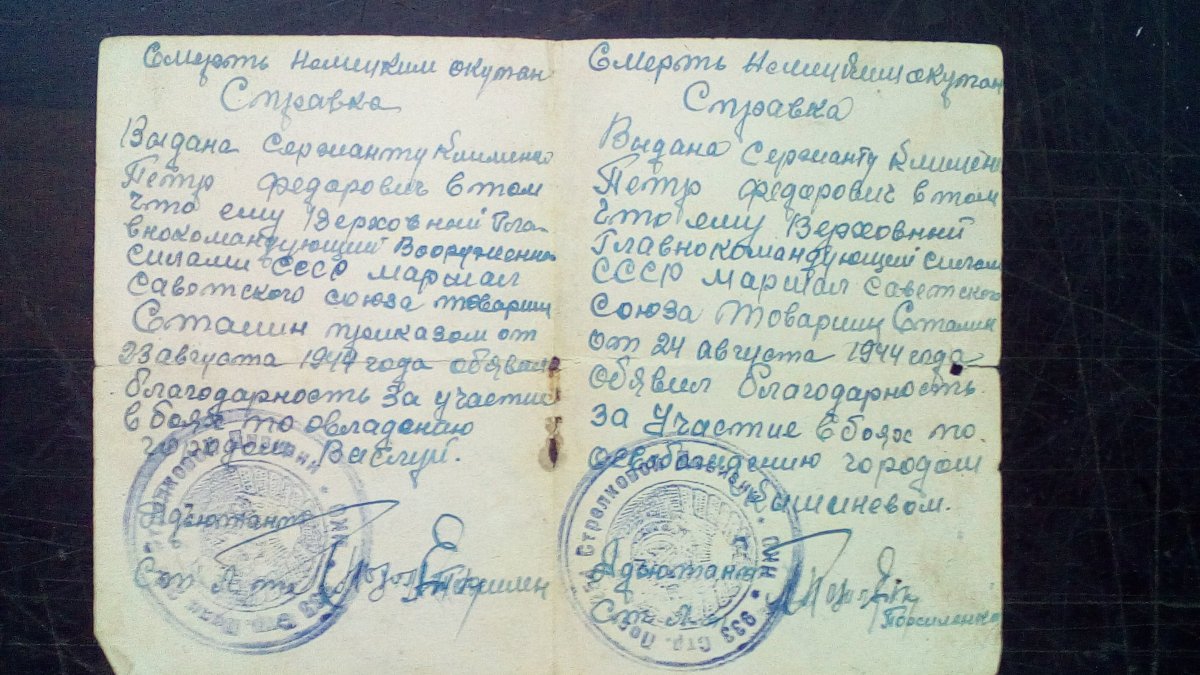 Смерть Немецким окупан
Справка
Выдана Сержанту Клименко
Петр Федарович в том
что ему Верховный Гла-
внокомандующий Вооружен
силами СССР Маршал
Саветского союза товарищ
Сталин приказом от
23 августа 1944 года обявил
благодарность За участие
в боях по овладению
городом Васлуй.
Адьютант
Смерть Немецким окупан
Справка
Выдана Сержанту Клименко
Петр Федарович в том
что ему Верховный
Главнокомандующий силам
СССР Маршал Саветского
Союза Товарищ Сталин
от 24 августа 1944 года
Обявил благодарность
За Участие в боях по
освобождению городом
Кишиневом.
Адьютант
Ст. Л-т
Порсиленко
Стрелковой Дивизии * НКО *
Стрелковой Дивизии * НКО * 933 Стр. Полк